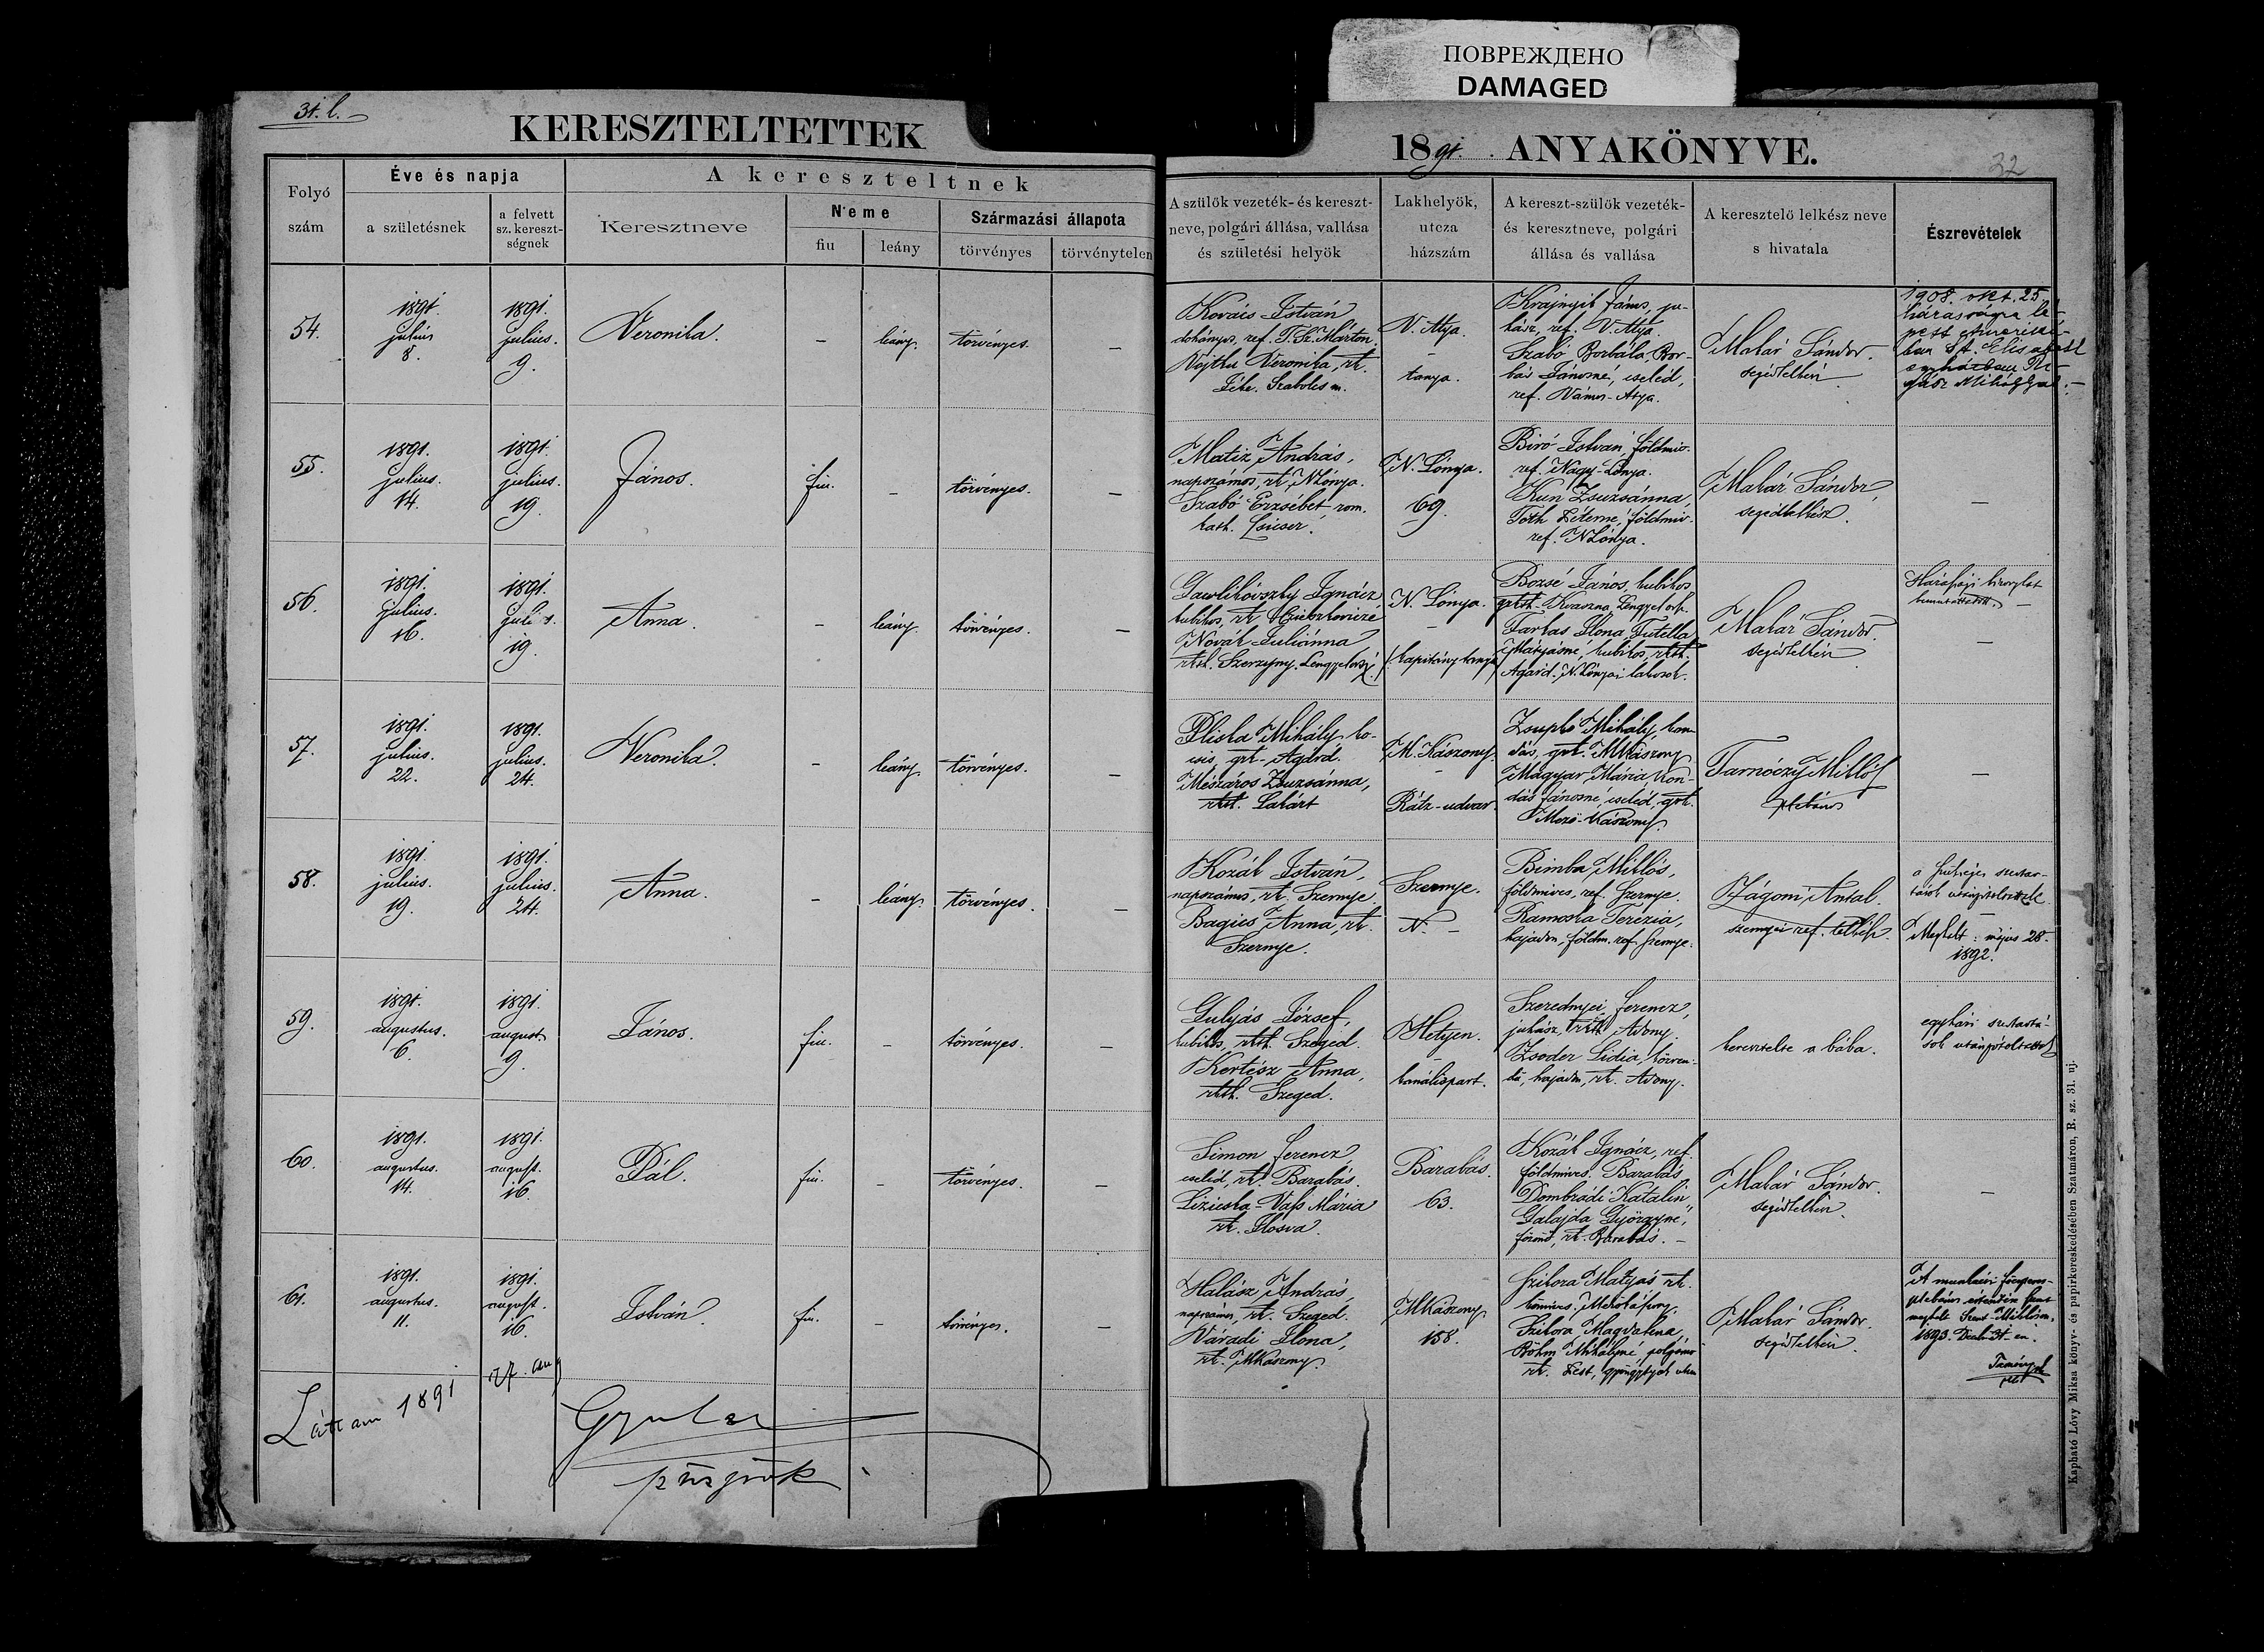 ПОВРЕЖДЕНО
DAMAGED
31. l.
KERESZTELTETTEK
1891. ANYAKÖNYVE.
32
Folyó
szám
Éve és napja
a születésnek
a felvett
sz. kereszt-
ségnek
A kereszteltnek
Keresztneve
Neme
fiu
leány
Származási állapota
törvényes
törvénytelen
A szülök vezeték- és kereszt-
neve, polgári állása, vallása
és születési helyök
Lakhelyök,
utcza
házszám
A kereszt-szülök vezeték-
és keresztneve, polgári
állása és vallása
A keresztelő lelkész neve
s hivatala
Észrevételek
54.
1891.
julius
8.
1891.
julius.
9.
Veronika.
–
leány.
törvényes.
–
Kovács István
dohányos, ref. T. Sz. Márton
Vojtku Veronika, rk.
Léke. Szabolcs m.
V. Atya.
–
tanya.
Krajnyik János, ju-
hász, ref. V. Atya.
Szabó Borbála, Bor-
bás Jánosné, cseléd,
ref. Vámos-Atya.
Makár Sándor.
segédlelkész
1908. okt. 25.
házasságra lé-
pett Ameriká-
ban St. Elisabeth
egyházban
Mihálylyal.
55.
1891.
julius.
14.
1891.
julius.
19.
János.
fiu.
–
törvényes.
–
Matiz András,
napszámos, rk, NLónya.
Szabó Erzsébet rom.
kath. Csicser.
N. Lónya.
69.
Biró István, földmiv.
ref. Nagy-Lónya.
Kun Zsuzsánna,
Tóth Péterné, földmiv.
ref. NLónya.
Makár Sándor,
segédlelkész.
–
56.
1891.
julius.
16.
1891.
julius.
19.
Anna.
–
leány.
törvényes.
–
Gawlikovszky Ignácz
kubikos, rk
Novák Juliánna
rkth. Szerzyny. Lengyelorsz.
N. Lónya.
–
(kapitány tanya)
Bozsé János, kubikos
grkth. Kvaszna, Lengyel orsz.
Farkas Ilona, Futella
Mátyásné, kubikos, rkth.
Agárd. N. Lónyai lakosok.
Makár Sándor.
segédlelkész
Házassági bizonylat
bemutattatott.
–
57.
1891.
julius.
22.
1891.
julius.
24.
Veronika.
–
leány.
törvényes.
–
Pliska Mihály ko-
csis, grk. Agárd.
Mészáros Zsuzsánna,
rkth. Lakárt
M. Kászony.
–
Rátz-udvar.
Zsupkó Mihály, kon-
dás, grk. MKászony
Magyar Mária, Kon-
dás Jánosné, cseléd, grk.
Mező-Kászony.
Tarnóczy Miklós
plebános
–
58.
1891.
julius.
19.
1891.
julius.
24.
Anna.
–
leány.
törvényes.
–
Kozák István,
napszámos, rk. Szernye.
Bagics Anna, rk.
Szernye.
Szernye.
N. –
Bimba Miklós,
földmives, ref. Szernye.
Ramoska Terézia,
hajadon, földm. ref. Szernye.
Zágoni Antal.
szernyei ref. lelkész.
a szükséges szertar-
tások utánpótoltattak
–
Meghalt: május 28.
1892.
59.
1891.
augustus.
6.
1891.
august.
9.
János.
fiu.
–
törvényes.
–
Gulyás József,
kubikos, rkth. Szeged.
Kertész Anna,
rkth. Szeged.
Hetyen.
–
kanálispart.
Szerednyei Ferencz,
juhász, rkth. Adony.
Zsoder Lidia, közren-
dü, hajadon, rk. Adony.
keresztelte a bába.
egyházi szertartá-
sok utánpótoltattak
60.
1891.
augustus.
14.
1891.
august.
16.
Pál.
fiu.
–
törvényes.
–
Simon Ferencz,
cseléd, rk. Barabás.
Liziczka-Vass Mária
rk. Ilosva.
Barabás.
63.
Kozák Ignácz, ref.
földmives. Barabás
Dombrádi Katalin,
Galajda Györgyné,
földmiv, rk. Barabás. –
Makár Sándor.
segédlelkész.
–
61.
1891.
augustus.
11.
1891.
august.
16.
István.
fiu.
–
törvényes.
–
Halász András,
napszámos, rk. Szeged.
Váradi Ilona,
rk. MKászony.
MKászony
158.
Szikora Mátyás rk.
kőmives. MezőKászony.
Szikora Magdolna,
Böhm Mihályné, polgárnő
rk. Pest, gyöngytyuk utca
Makár Sándor.
segédlelkész.
A munkácsi főesperes-
plebános értesitése szerint
meghalt Szent-Miklóson,
1893. Decb. 31-én.
Láttam 1891
27. aug
Gyula
püspök
Kapható Lővy Miksa könyv- és papirkereskedésében Szatmáron, R. sz. 31. uj.